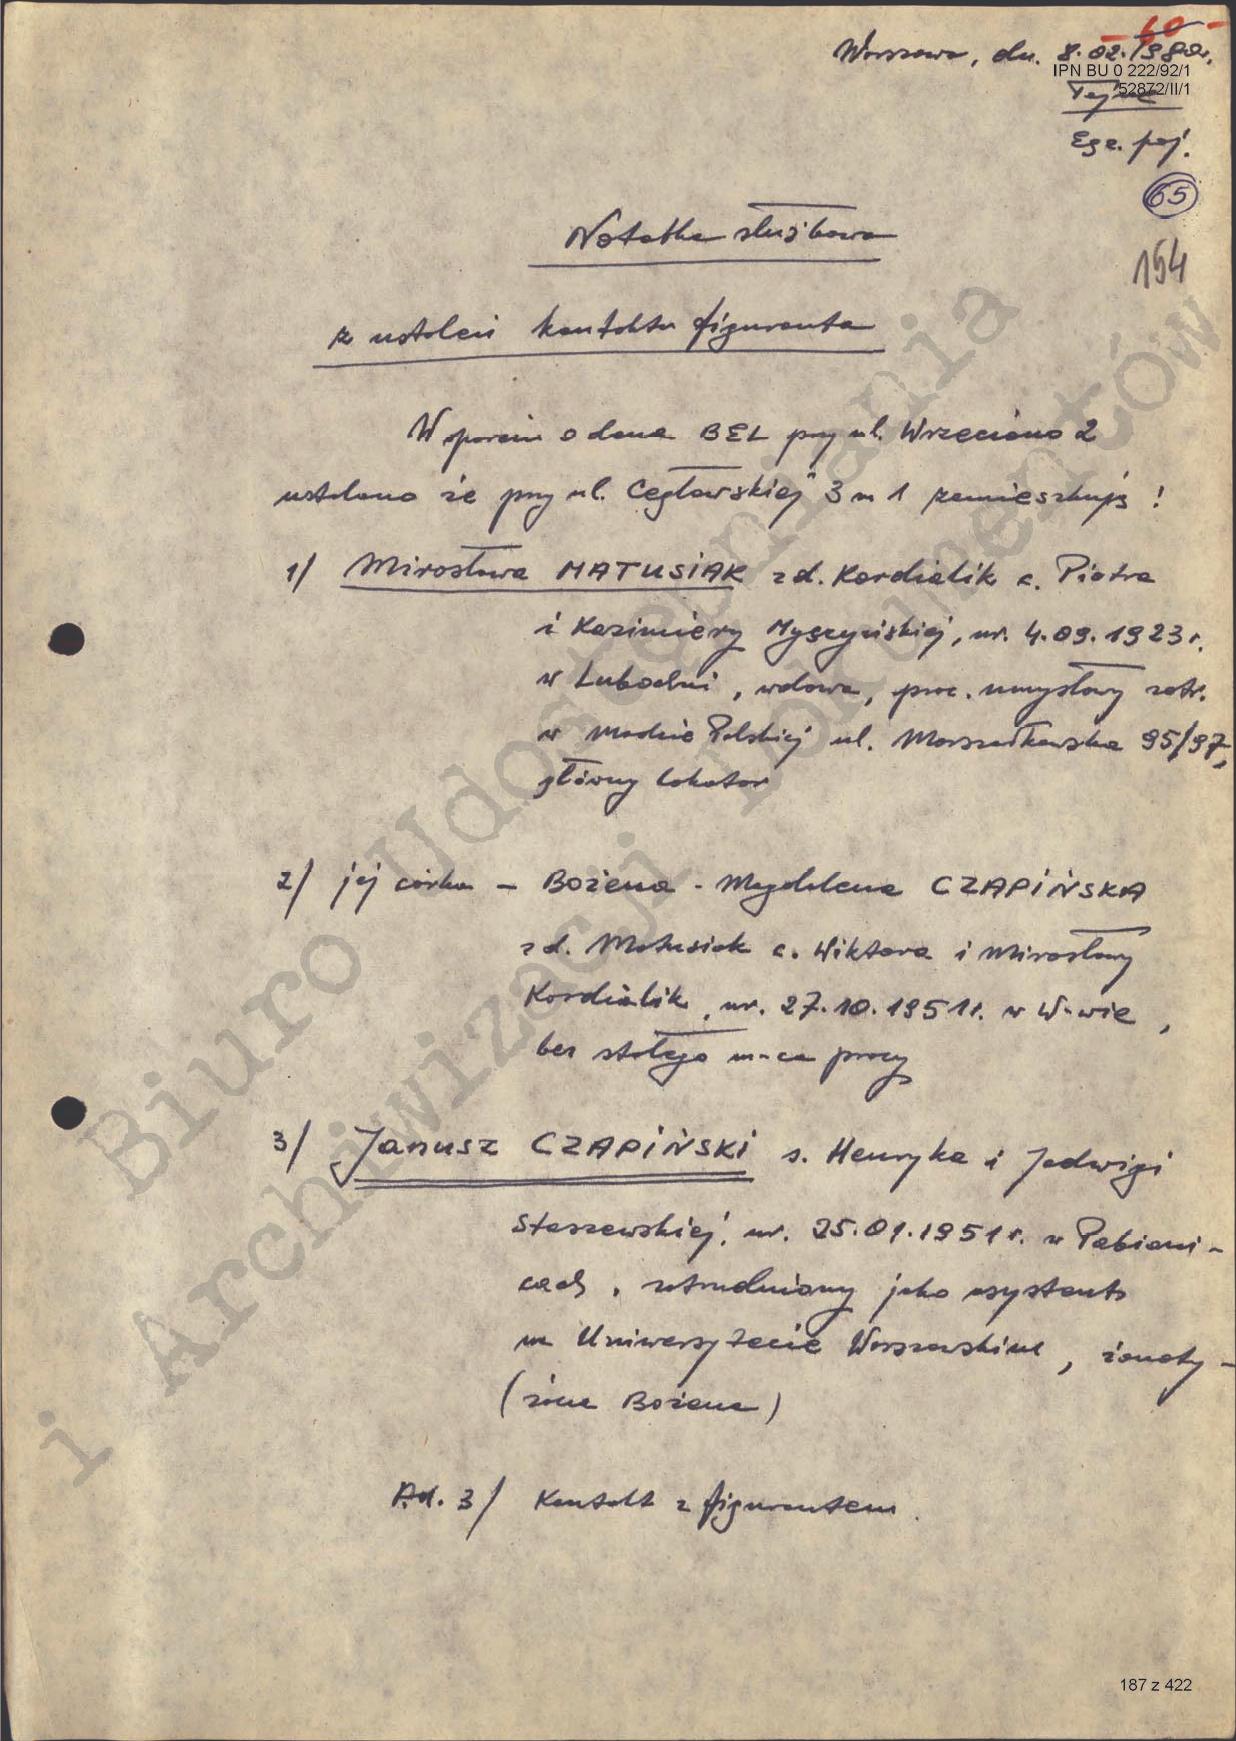 - 60 -
Warszawa, dn. 8.02.1980r.
IPN BU 0 222/92/1
52872/II/1
Tajne
Egz. poj.
65
154
Notatka służbowa
z ustaleń kontaktu figuranta
W oparciu o dane BEL przy ul. Wrzeciono 2
ustalono że przy ul. Cegłowskiej 3 m 1 zamieszkują:
1/ Mirosława MATUSIAK zd. Kordialik c. Piotra
i Kazimiery Myszyńskiej, ur. 4.09.1923r.
w Lubochni, wdowa, prac. umysłowy zatr.
w Modzie Polskiej ul. Marszałkowska 95/97,
główny lokator
2/ jej córka - Bożena - Magdalena CZAPIŃSKA
zd. Matusiak c. Wiktora i Mirosławy
Kordialik, ur. 27.10.1951r. w W-wie,
bez stałego m-ca pracy
3/ Janusz CZAPIŃSKI s. Henryka i Jadwigi
Staszewskiej, ur. 25.01.1951r. w Pabiani-
cach, zatrudniony jako asystent
na Uniwersytecie Warszawskim, żonaty -
(żona Bożena)
Ad. 3/ Kontakt z figurantem.
Biuro Udostępniania
i Archiwizacji Dokumentów
187 z 422